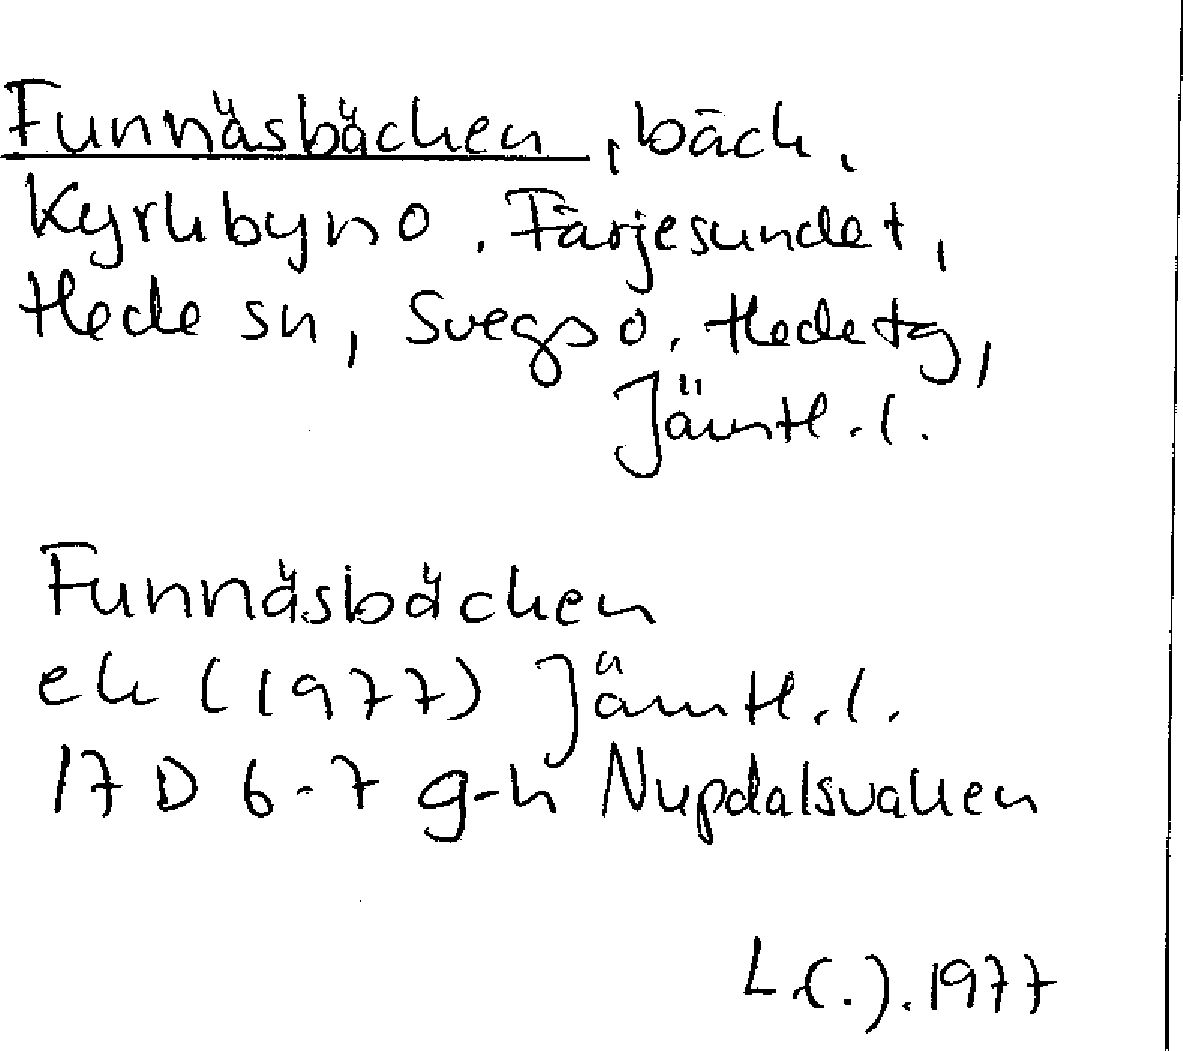 Funnäsbäcken, bäck,
Kyrkbyn o. Färjesundet,
Hede sn, Svegs o. Hede tg,
Jämtl. l.
Funnäsbäcken
ek (1977) Jämtl. l.
17 D 6-7 g-h Nupdalsvallen
L.(.).1977